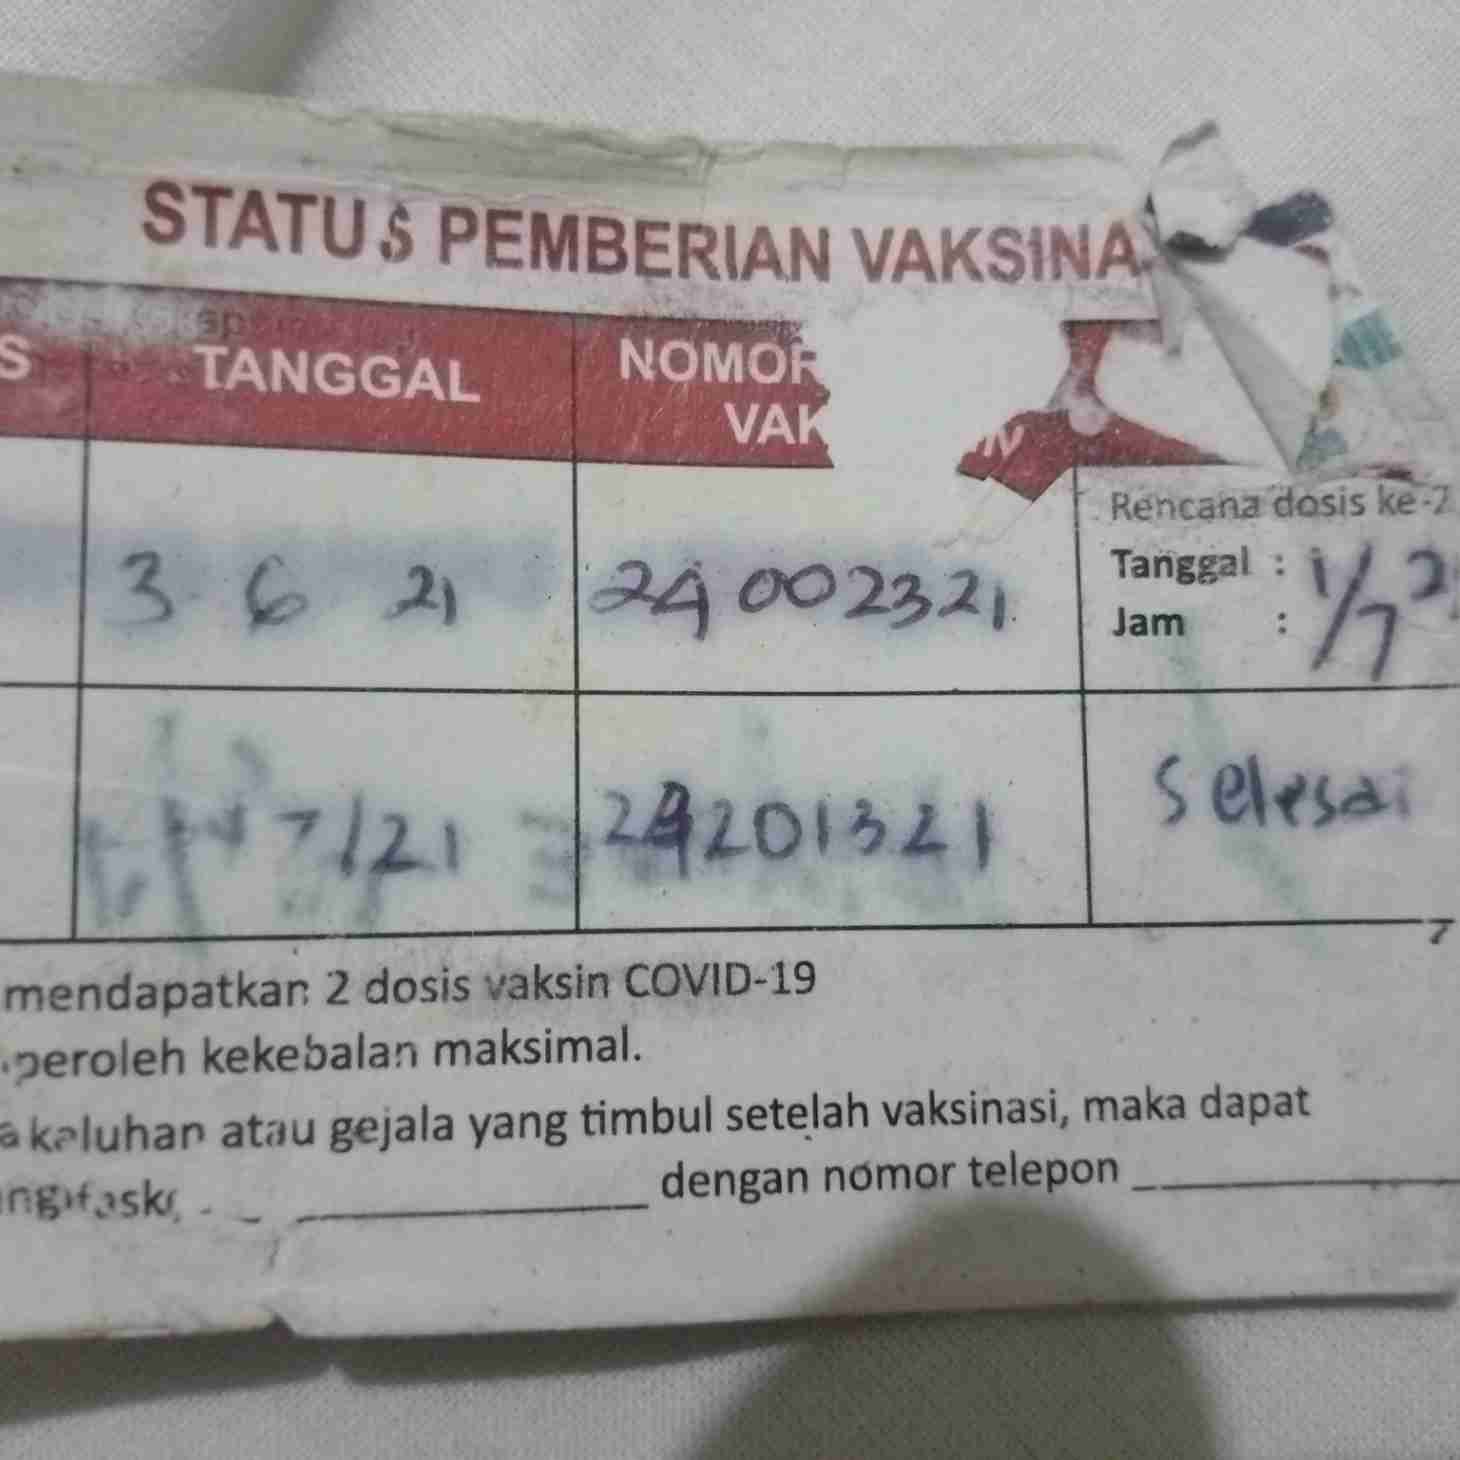 STATUS PEMBERIAN VAKSINA
S TANGGAL NOMOR
VAK
Rencana dosis ke-2
3 6 21 24002321 Tanggal : 1/7 2
Jam :
7/21 24201321 Selesai
mendapatkan 2 dosis vaksin COVID-19
peroleh kekebalan maksimal.
a keluhan atau gejala yang timbul setelah vaksinasi, maka dapat
dengan nomor telepon